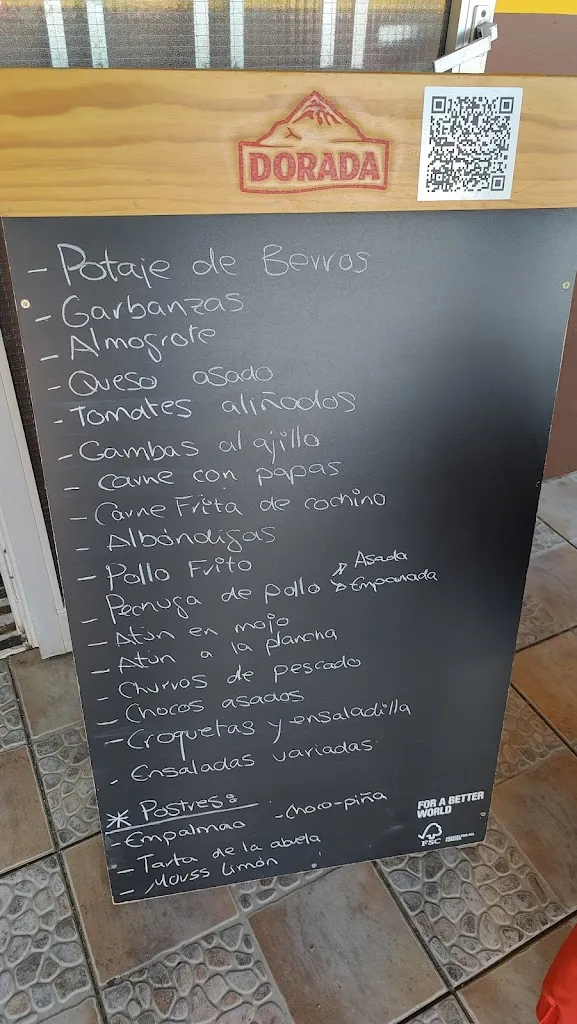 DORADA
- Potaje de Berros
- Garbanzas
- Almogrote
- Queso asado
- Tomates aliñados
- Gambas al ajillo
- Carne con papas
- Carne Frita de cochino
- Albóndigas
- Pollo Frito
- Pechuga de pollo → Asada
→ Empanada
- Atún en mojo
- Atún a la plancha
- Churros de pescado
- Chocos asados
- Croquetas y ensaladilla
- Ensaladas variadas
* Postres:
- Empalmao - choco-piña
- Tarta de la abuela
- Mouss Limón
FOR A BETTER
WORLD
FSC